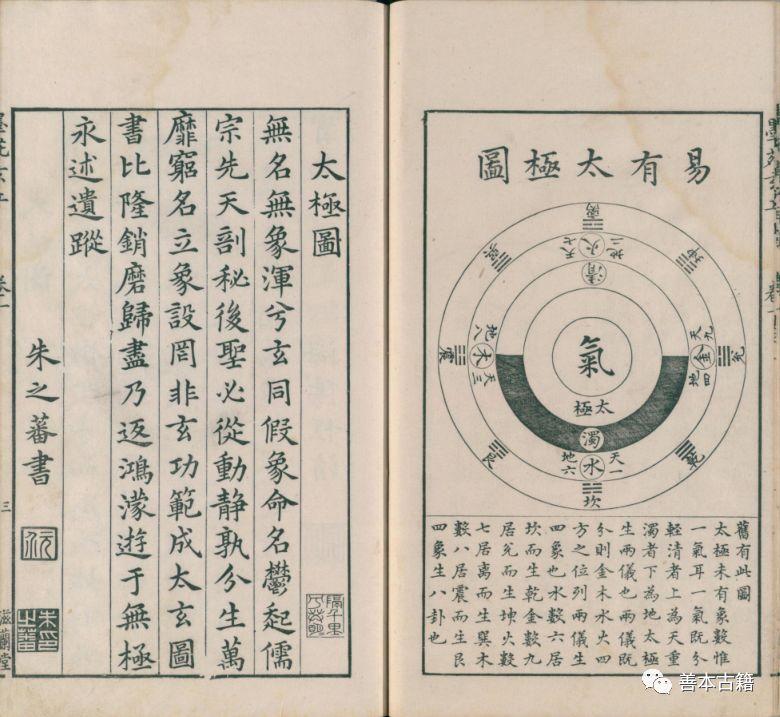 易有太極圖
離
地二
火
天七
清
巽
坤
地八
木
天三
震
氣
太極
天九
金
地四
兌
濁
地六
水
天一
艮
乾
坎
舊有此圖
太極未有象數惟
一氣耳一氣既分
輕清者上為天重
濁者下為地太極
生兩儀也兩儀既
分則金木水火四
方之位列兩儀生
四象也水數六居
坎而生乾金數九
居兌而生坤火數
七居離而生巽木
數八居震而生艮
四象生八卦也
太極圖
無名無象渾兮玄同假象命名鬱起儒
宗先天剖秘後聖必從動靜孰分生萬
靡窮名立象設罔非玄功範成太玄圖
書比隆銷磨歸盡乃返鴻濛遊于無極
永述遺蹤
朱之蕃書
三
滋蘭堂
善本古籍